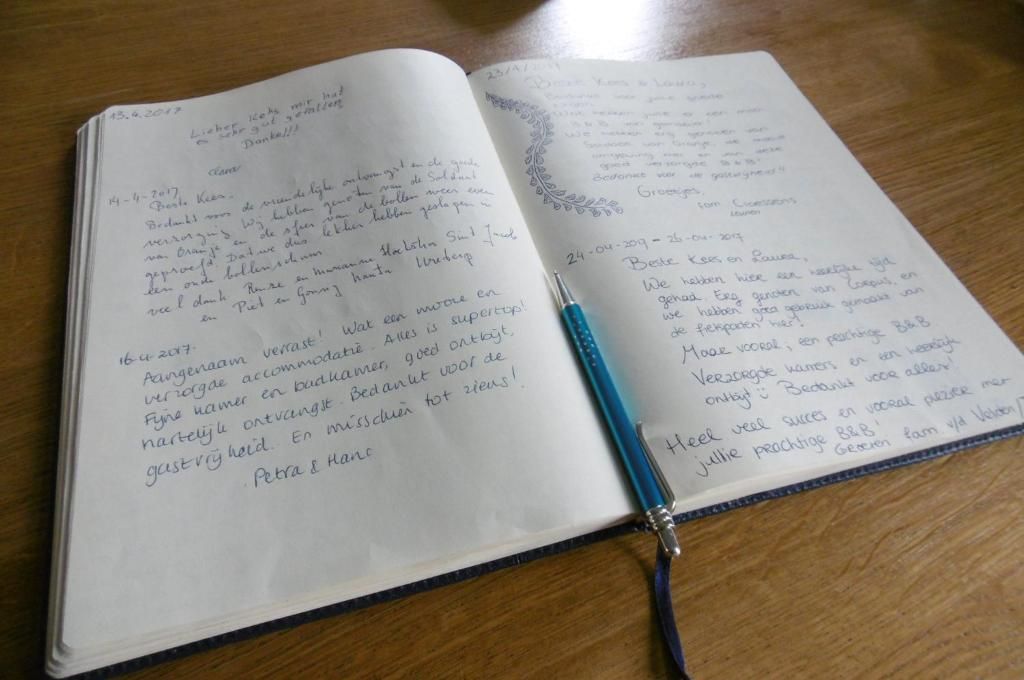 13.4.2017
Lieher Kehs mir hat
es sehr gut gefallen
Danke!!!
Clara
14-4-2017
Beste Kees,
Bedankt voor de vriendelijke ontvangst en de goede
verzorging. Wij hebben genoten van de Soldaat
van Oranje en de sfeer van de bollen weer even
geproefd. Dat we dus lekker hebben geslapen in
een oude bollenschuur
veel dank Rense en Marianne Sint Jacob
en Piet en
16-4-2017.
Aangenaam verrast! Wat een mooie en
verzorgde accommodatie. Alles is supertop!
Fijne kamer en badkamer, goed ontbijt,
hartelijk ontvangst. Bedankt voor de
gastvrijheid. En misschien tot ziens!
Petra & Hans
23/4/2017
Beste Kees & Laura,
Bedankt voor jullie goede
zorgen.
Wat hebben jullie er een mooi
B&B van gemaakt!
We hebben erg genoten van
Soldaat van Oranje, de mooie
omgeving en van deze
goed verzorgde B&B!
Bedankt voor de gastvrijheid!!
Groetjes,
fam
24-04-2017 - 26-04-2017
Beste Kees en Laura,
We hebben hier een heerlijke tijd
gehad. Erg genoten van Corpus, en
we hebben goed gebruik gemaakt van
de fietspaden hier!
Maar vooral; een prachtige B&B.
Verzorgde kamers en een heerlijk
ontbijt Bedankt voor alles!
Heel veel succes en vooral plezier met
jullie prachtige B&B!
Groeten fam v/d Velden